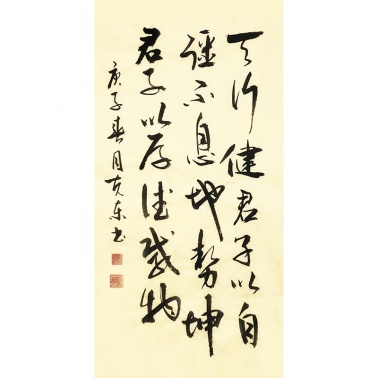 天行健君子以自
强不息地势坤
君子以厚德载物
庚子春月克东书